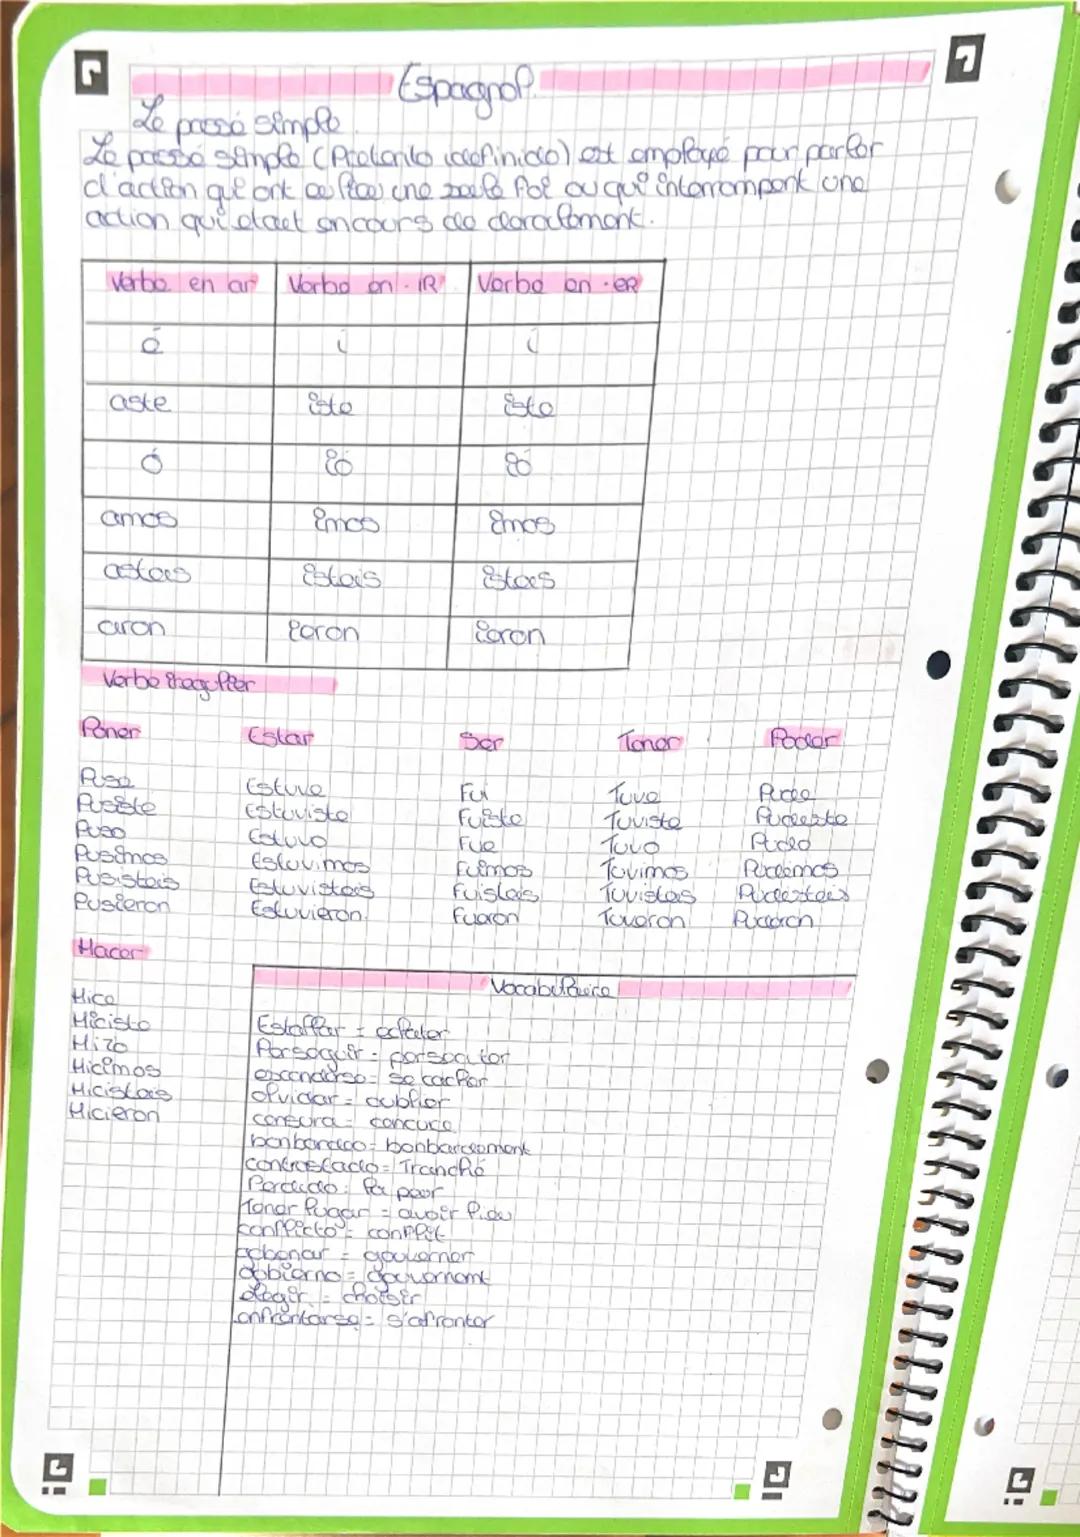 Espagnol.
Le passé simple
Le passé simple (Pretérito indefinido) est employé pour parler
d'action qui ont eu lieu une seule foi ou qui interrompent une
action qui étaet en cours de deroulement.
Verbe en ar Verbe en -IR Verbe en -eR
é í í
aste iste iste
ó ió ió
amos imos imos
astais istais istais
aron ieron ieron
Verbe iregulier
Poner Estar Ser Tener Poder
Puse Estuve Fui Tuve Pude
Pusiste Estuviste Fuiste Tuviste Pudiste
Puso Estuvo Fue Tuvo Pudo
Pusimos Estuvimos Fuimos Tuvimos Pudimos
Pusistais Estuvistais Fuistais Tuvistais Pudistais
Pusieron Estuvieron Fueron Tuveron Puderon
Hacer
Hice
Hiciste
Hizo
Hicimos
Hicistais
Hicieron
Vocabulaire
Estallar = eclater
Perseguir = persecuter
esconderse = se cacher
olvidar = oublier
censura = censure
bonbardeo = bonbardement
contrastado = Tranché
Perdido =
Tener lugar = avoir lieu
conflicto = conflit
gobenar = gouverner
gobierno = gouvernemt
elegir = choisir
enfrentarse = s'afronter